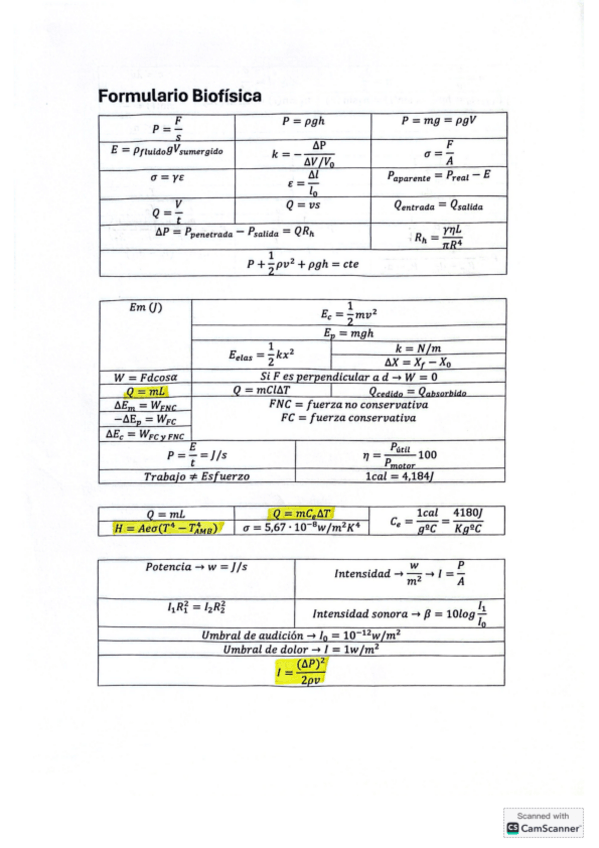 Formulario Biofísica
P = F/s
P = ρgh
P = mg = ρgV
E = ρ_fluido gV_sumergido
k = − ΔP/(ΔV/V₀)
σ = F/A
σ = γε
ε = Δl/l₀
P_aparente = P_real − E
Q = V/t
Q = vs
Q_entrada = Q_salida
ΔP = P_penetrada − P_salida = QR_h
R_h = γηL/πR⁴
P + 1/2 ρv² + ρgh = cte
Em (J)
E_c = 1/2 mv²
E_p = mgh
E_elas = 1/2 kx²
k = N/m
ΔX = X_f − X₀
W = Fdcosα
Si F es perpendicular a d → W = 0
Q = mL
Q = mClΔT
Q_cedido = Q_absorbido
ΔE_m = W_FNC
FNC = fuerza no conservativa
−ΔE_p = W_FC
FC = fuerza conservativa
ΔE_c = W_FC y FNC
P = E/t = J/s
η = P_útil/P_motor 100
Trabajo ≠ Esfuerzo
1cal = 4,184J
Q = mL
Q = mC_eΔT
C_e = 1cal/gºC = 4180J/KgºC
H = Aeσ(T⁴ − T⁴_AMB)
σ = 5,67 · 10⁻⁸w/m²K⁴
Potencia → w = J/s
Intensidad → w/m² → I = P/A
I₁R₁² = I₂R₂²
Intensidad sonora → β = 10log I₁/I₀
Umbral de audición → I₀ = 10⁻¹²w/m²
Umbral de dolor → I = 1w/m²
I = (ΔP)²/2ρv
Scanned with
CS CamScanner